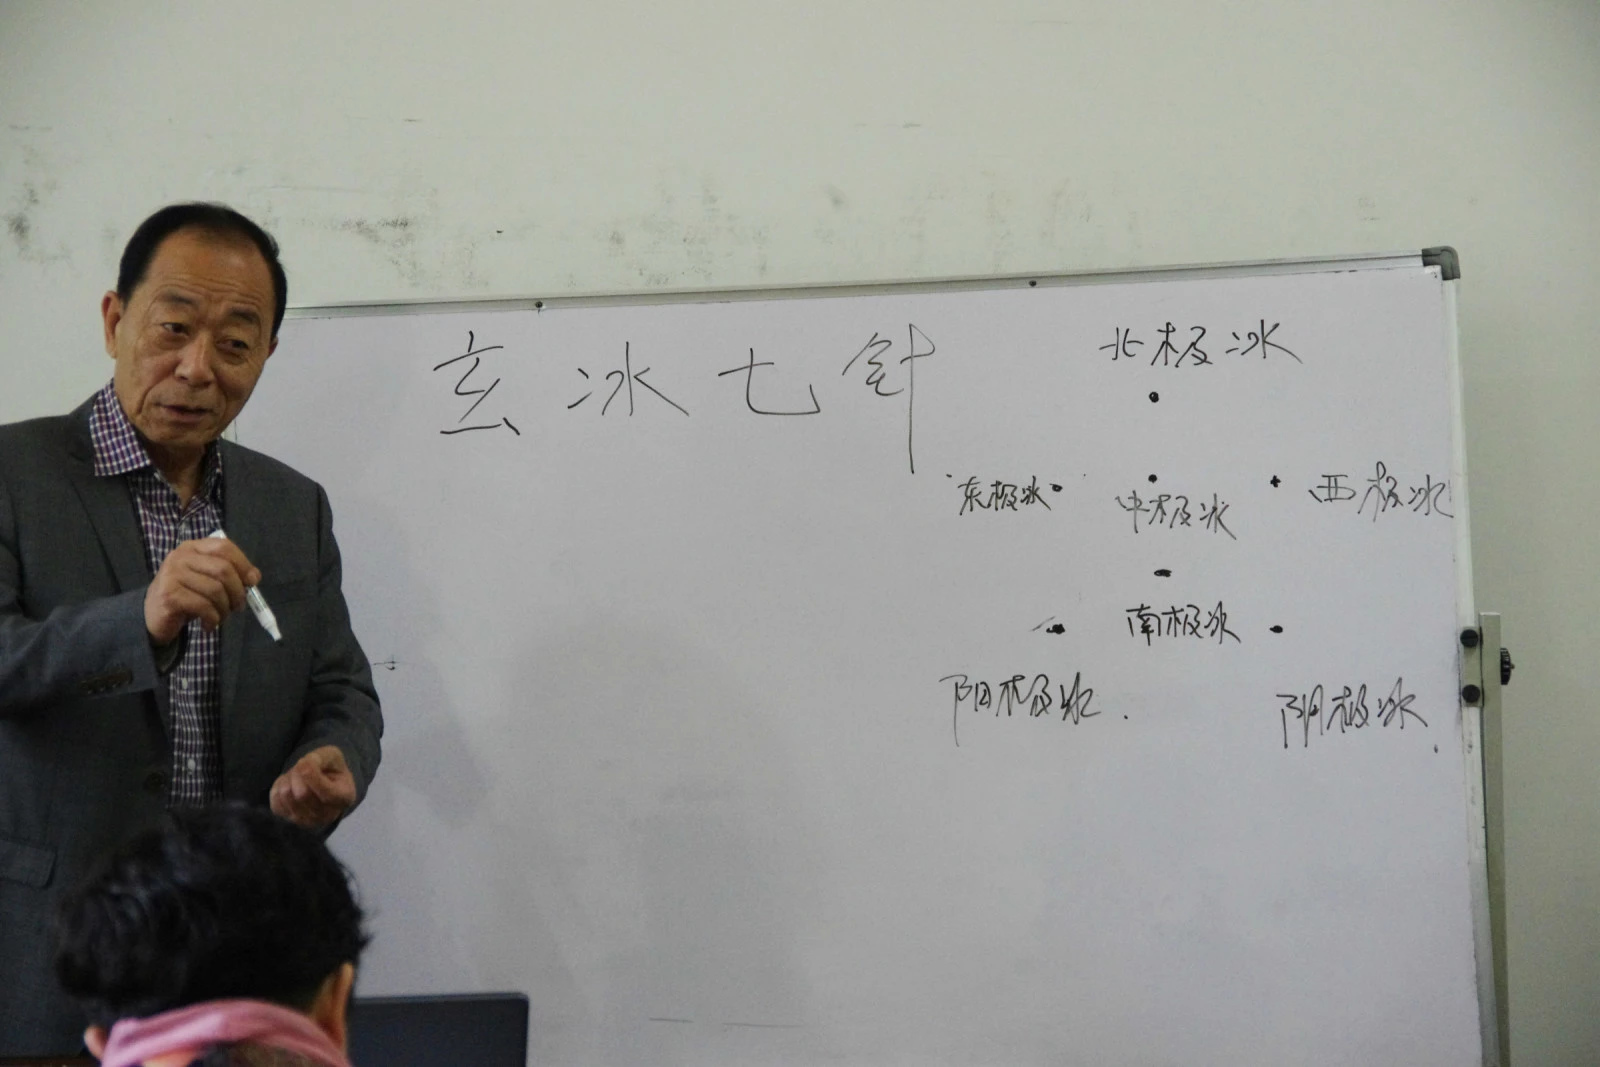 玄冰七针
北极冰
东极冰
中极冰
西极冰
南极冰
阳极冰
阴极冰